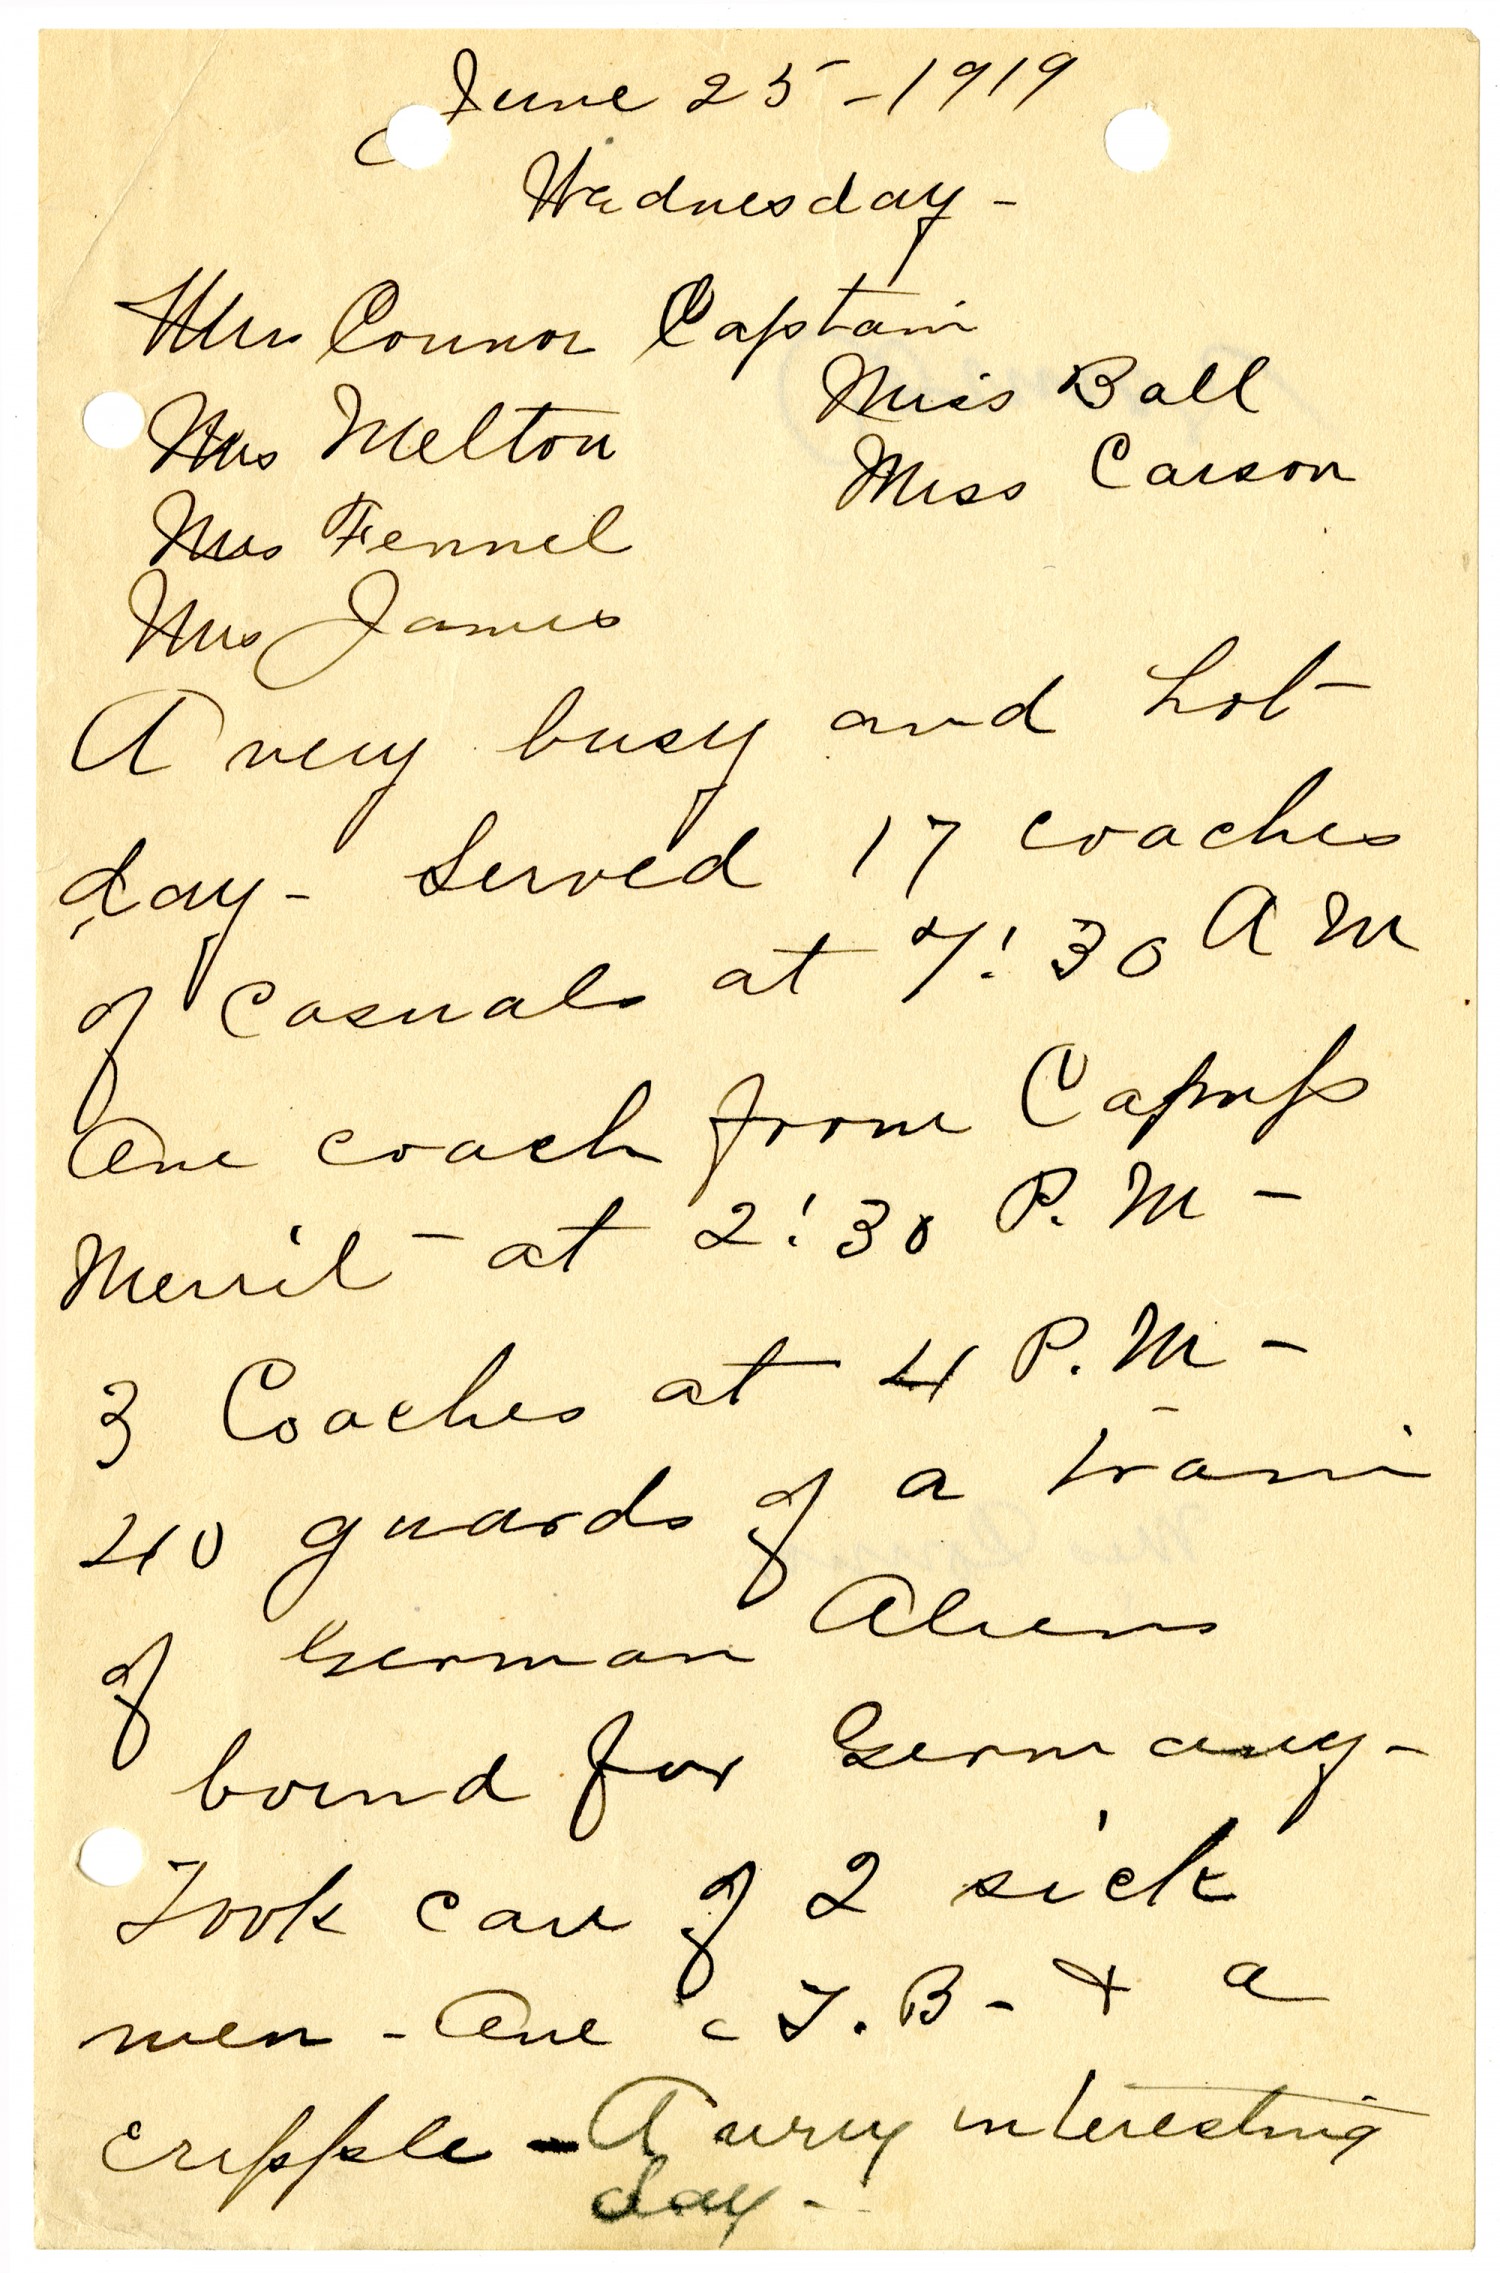 June 25 - 1919
Wednesday -
Mrs Connor Captain
Miss Ball
Mrs Melton
Miss Carson
Mrs Fennel
Mrs James
A very busy and hot
day - Served 17 coaches
of Casuals at 7:30 A M
One coach from Camp
Merril - at 2:30 P. M -
3 Coaches at 4 P. M -
40 guards of a train
of German Aliens
bound for Germany -
Took care of 2 sick
men - One c T. B - + a
cripple - A very interesting
day -